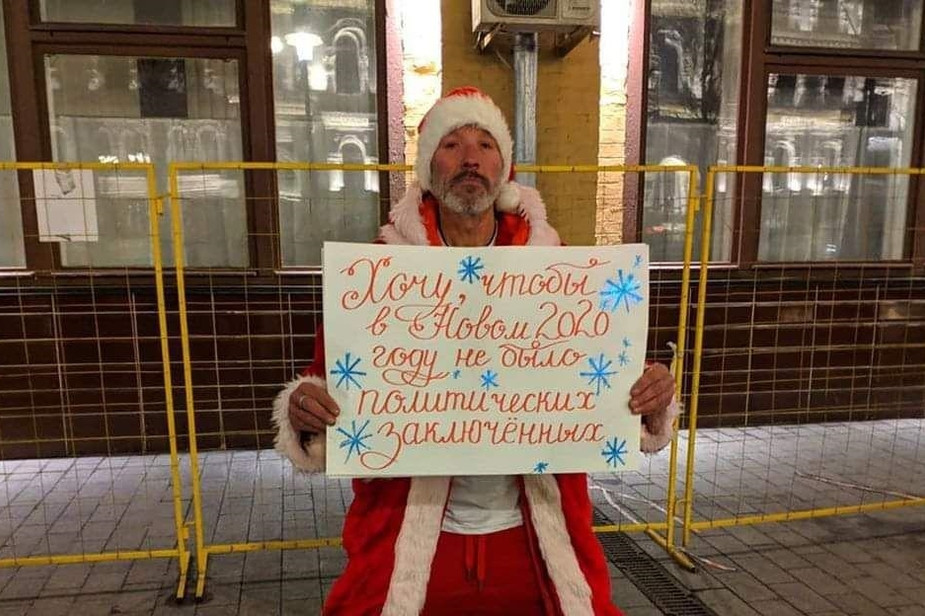 Хочу, чтобы
в Новом 2020
году не было
политических
заключённых